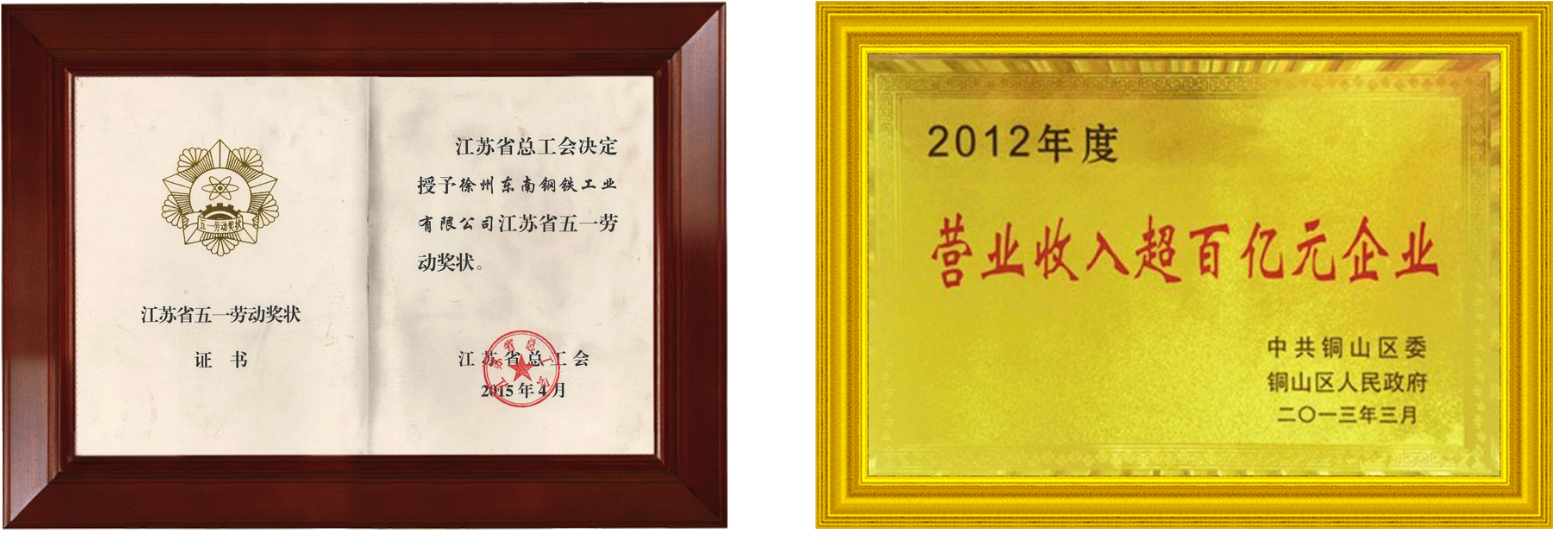 五一劳动奖状
江苏省五一劳动奖状
证 书
江苏省总工会决定
授予徐州东南钢铁工业
有限公司江苏省五一劳
动奖状。
江苏省总工会
2015年4月
江苏省总工会
2012年度
营业收入超百亿元企业
中共铜山区委
铜山区人民政府
二〇一三年三月